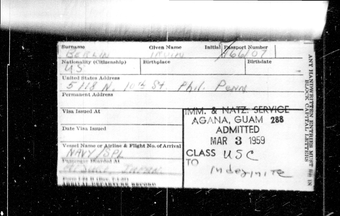 Surname Given Name Initial Passport Number
BERLIN IRVIN 166107
Nationality (Citizenship) Birthplace Birthdate
US
United States Address
5118 N. 10th St Phil. Penn
Permanent Address
Visa Issued At
Date Visa Issued
Vessel Name or Airline & Flight No. of Arrival
NAVY/SPL
Passenger Boarded at
JAPAN
IMM. & NATZ. SERVICE
AGANA, GUAM 288
ADMITTED
MAR 3 1959
CLASS USC
TO Indefinite
ANY HANDWRITTEN ENTRIES MUST BE IN
BLOCK CAPITAL LETTERS